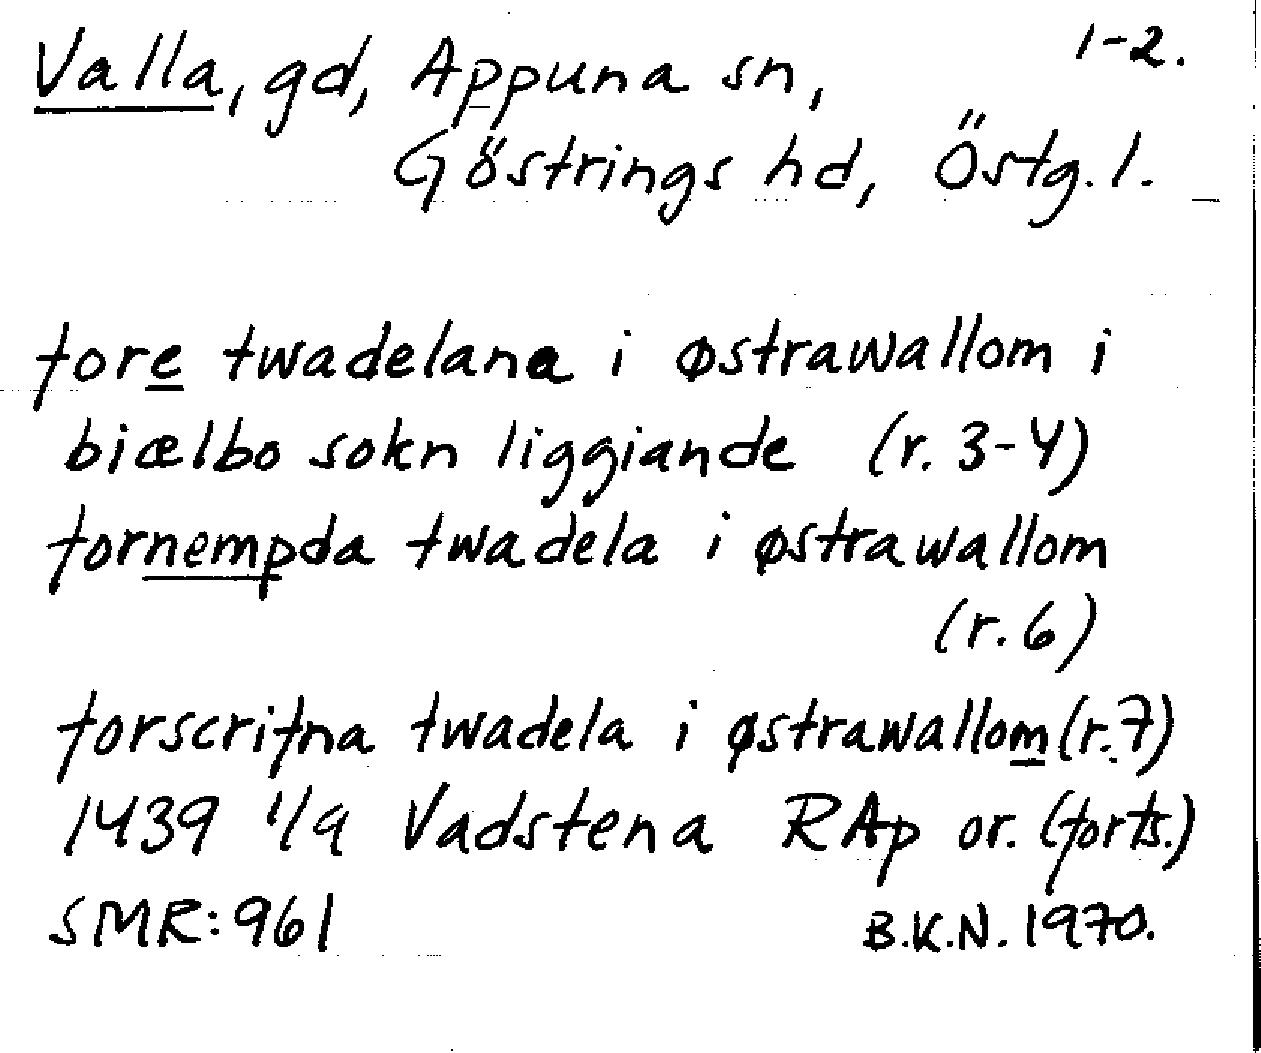 Valla, gd, Appuna sn, 1-2.
Göstrings hd, Östg. l.
fore twadelana i østrawallom i
biælbo sokn liggiande (r. 3-4)
fornempda twadela i østrawallom
(r. 6)
forscrifna twadela i østrawallom (r. 7)
1439 1/9 Vadstena RAp or. (forts.)
SMR: 961 B.K.N. 1970.